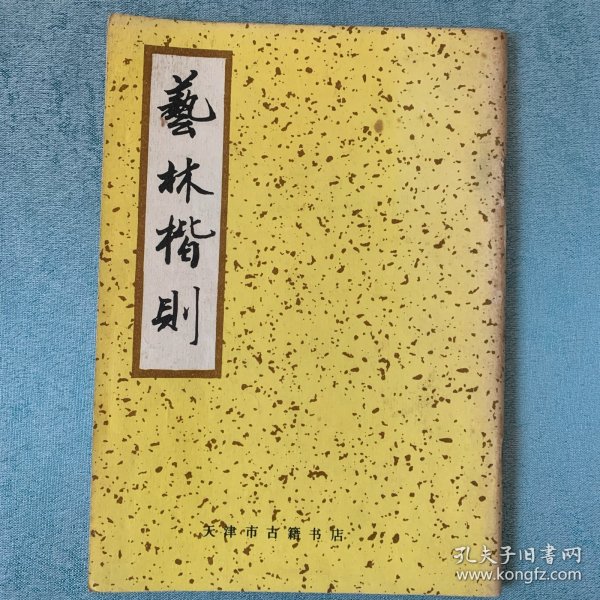 藝林楷則
天津市古籍书店
孔夫子旧书网
www.kongfz.com